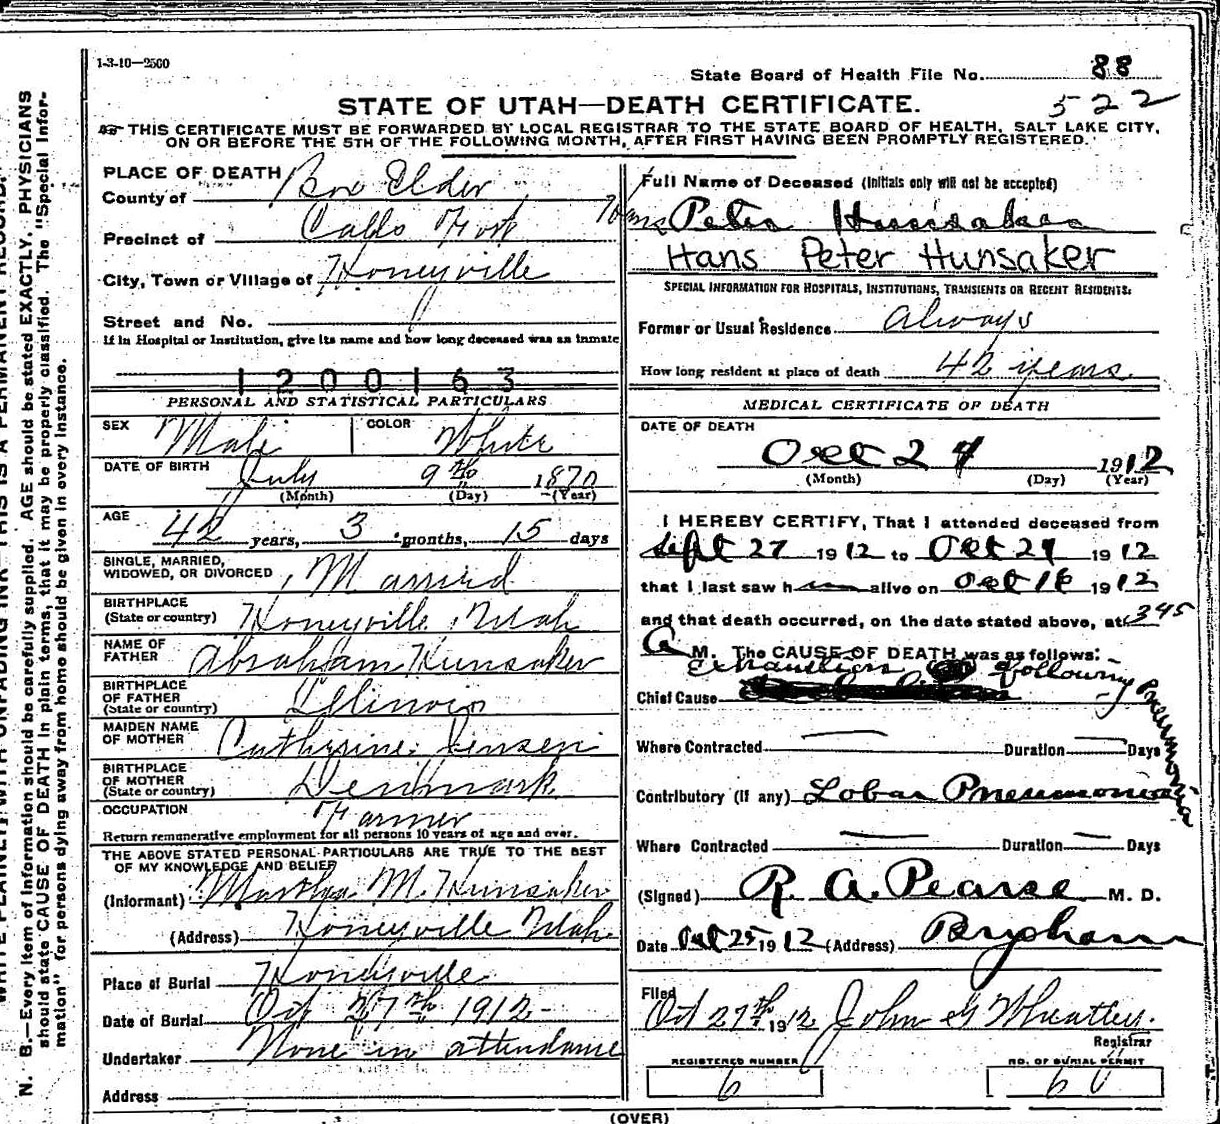 1-3-10—2500
State Board of Health File No. 88
522
STATE OF UTAH—DEATH CERTIFICATE.
THIS CERTIFICATE MUST BE FORWARDED BY LOCAL REGISTRAR TO THE STATE BOARD OF HEALTH, SALT LAKE CITY,
ON OR BEFORE THE 5TH OF THE FOLLOWING MONTH, AFTER FIRST HAVING BEEN PROMPTLY REGISTERED.
PLACE OF DEATH
County of Box Elder
Precinct of Calls Fort
City, Town or Village of Honeyville
Street and No.
If in Hospital or Institution, give its name and how long deceased was an inmate
1200163
PERSONAL AND STATISTICAL PARTICULARS
SEX Male COLOR White
DATE OF BIRTH July 9th 1870
(Month) (Day) (Year)
AGE 42 years, 3 months, 15 days
SINGLE, MARRIED,
WIDOWED, OR DIVORCED Married
BIRTHPLACE
(State or country) Honeyville Utah
NAME OF
FATHER Abraham Hunsaker
BIRTHPLACE
OF FATHER
(State or country) Illinois
MAIDEN NAME
OF MOTHER Cathrine Jensen
BIRTHPLACE
OF MOTHER
(State or country) Denmark
OCCUPATION Farmer
Return remunerative employment for all persons 10 years of age and over.
THE ABOVE STATED PERSONAL PARTICULARS ARE TRUE TO THE BEST
OF MY KNOWLEDGE AND BELIEF
(Informant) Martha M. Hunsaker
(Address) Honeyville Utah
Place of Burial Honeyville
Date of Burial Oct 27th 1912
Undertaker None in attendance
Address
Full Name of Deceased (Initials only will not be accepted)
Hans Peter Hunsaker
Hans Peter Hunsaker
SPECIAL INFORMATION FOR HOSPITALS, INSTITUTIONS, TRANSIENTS OR RECENT RESIDENTS.
Former or Usual Residence Always
How long resident at place of death 42 years
MEDICAL CERTIFICATE OF DEATH
DATE OF DEATH
Oct 24 1912
(Month) (Day) (Year)
I HEREBY CERTIFY, That I attended deceased from
Sept 27 1912 to Oct 24 1912
that I last saw him alive on Oct 16 1912
and that death occurred, on the date stated above, at 345
A M. The CAUSE OF DEATH was as follows:
Exhaustion following Pneumonia
Chief Cause
Where Contracted Duration Days
Contributory (if any) Lobar Pneumonia
Where Contracted Duration Days
(Signed) R. A. Pearse M. D.
Date Oct 25 1912 (Address) Brigham
Filed
Oct 27th 1912 John G Wheatley.
Registrar
REGISTERED NUMBER NO. OF BURIAL PERMIT
6 60
(OVER)
N. B.—Every item of information should be carefully supplied. AGE should be stated EXACTLY. PHYSICIANS
should state CAUSE OF DEATH in plain terms, that it may be properly classified. The "Special Infor-
mation" for persons dying away from home should be given in every instance.